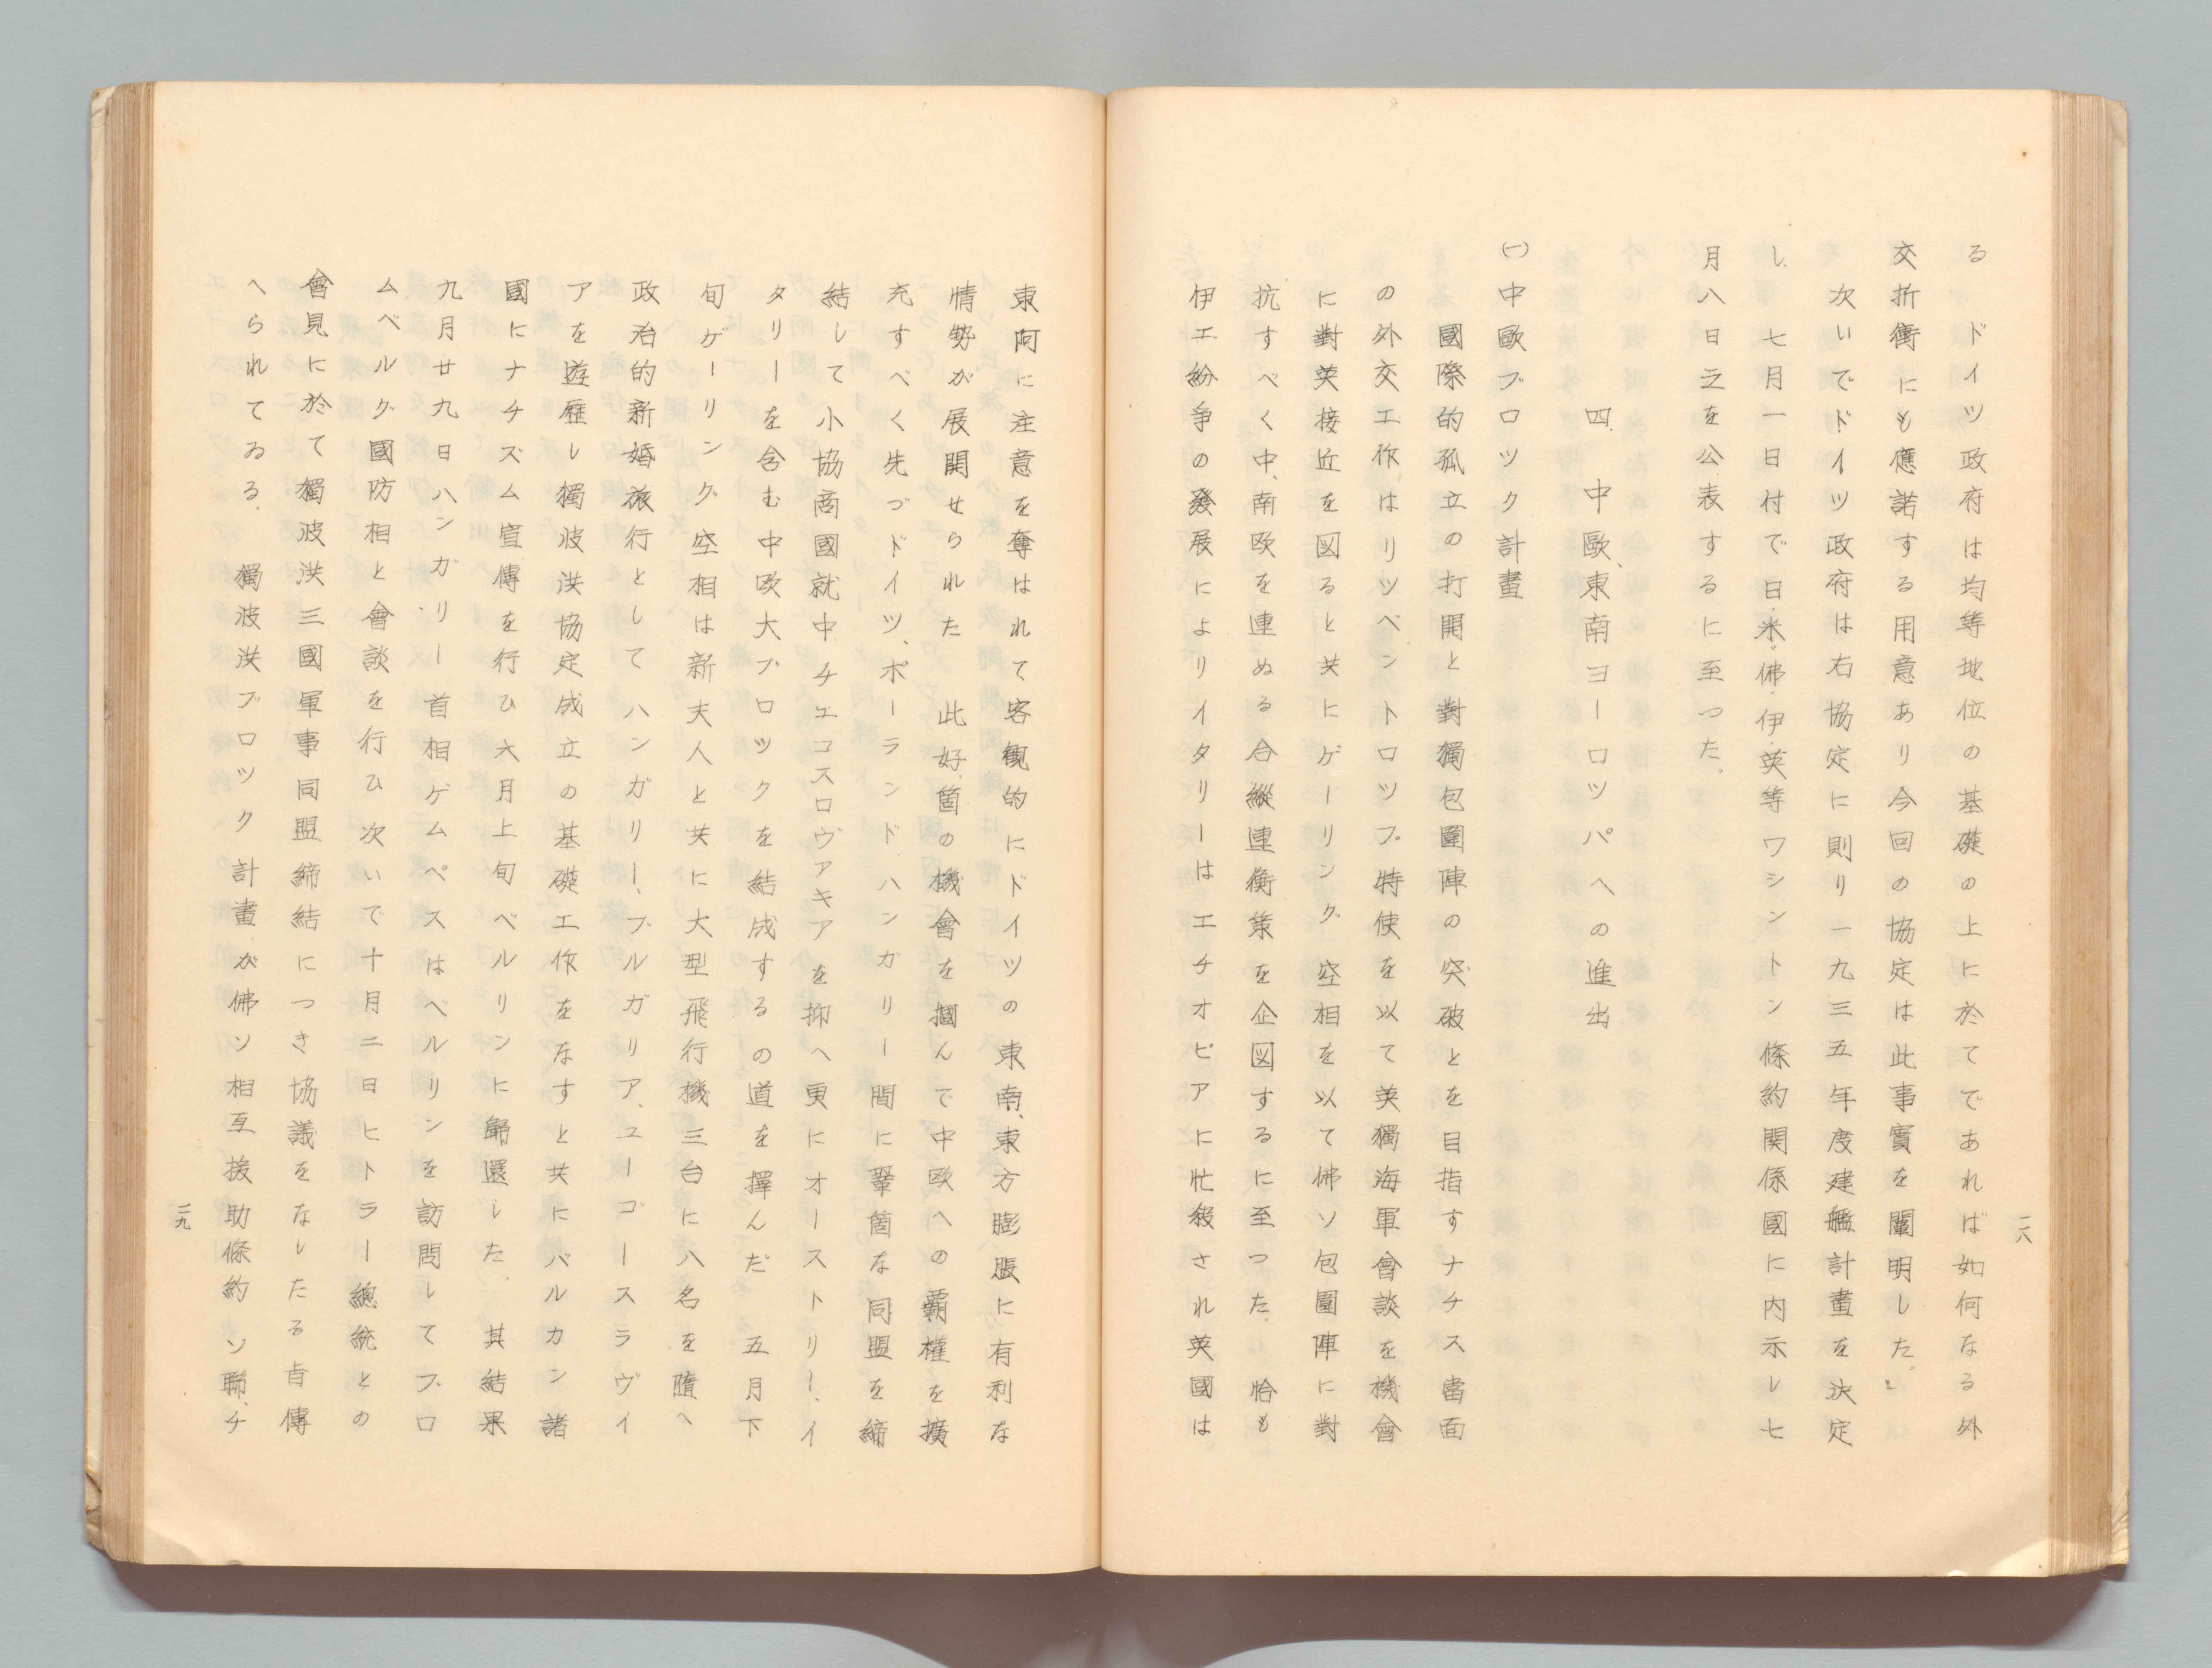 二八
る ドイツ政府は均等地位の基礎の上に於てであれば如何なる外
交折衝にも應諾する用意あり今回の協定は此事實を闡明した。」
次いでドイツ政府は右協定に則り一九三五年度建艦計畫を決定
し、七月一日付で日、米、佛、伊、英等ワシントン條約関係國に内示し七
月八日之を公表するに至つた。
四、中歐、東南ヨーロツパへの進出
㈠中歐ブロツク計畫
國際的孤立の打開と對獨包圍陣の突破とを目指すナチス當面
の外交工作はリツベントロツプ特使を以て英獨海軍會談を機會
に對英接近を図ると共にゲーリング空相を以て佛ソ包圍陣に對
抗すべく中、南欧を連ぬる合縱連衡策を企図するに至つた。恰も
伊エ紛争の發展によりイタリーはエチオピアに忙殺され英國は
東阿に注意を奪はれて客観的にドイツの東南、東方膨脹に有利な
情勢が展開せられた 此好箇の機會を摑んで中欧への覇權を擴
充すべく先づドイツ、ポーランド、ハンガリー間に鞏箇な同盟を締
結して小協商國就中チエコスロヴアキアを抑へ更にオーストリー、イ
タリーを含む中欧大ブロックを結成するの道を擇んだ 五月下
旬ゲーリング空相は新夫人と共に大型飛行機三台に八名を隨へ
政治的新婚旅行としてハンガリー、ブルガリア、ユーゴースラヴイ
アを遊歴し獨波洪協定成立の基礎工作をなすと共にバルカン諸
國にナチズム宣傳を行ひ六月上旬ベルリンに歸還した。其結果
九月廿九日ハンガリー首相ゲムベスはベルリンを訪問してブロ
ムベルグ國防相と會談を行ひ次いで十月二日ヒトラー總統との
會見に於て獨波洪三國軍事同盟締結につき協議をなしたる旨傳
へられてゐる。獨波洪ブロック計畫が佛ソ相互援助條約 ソ聯、チ
二九